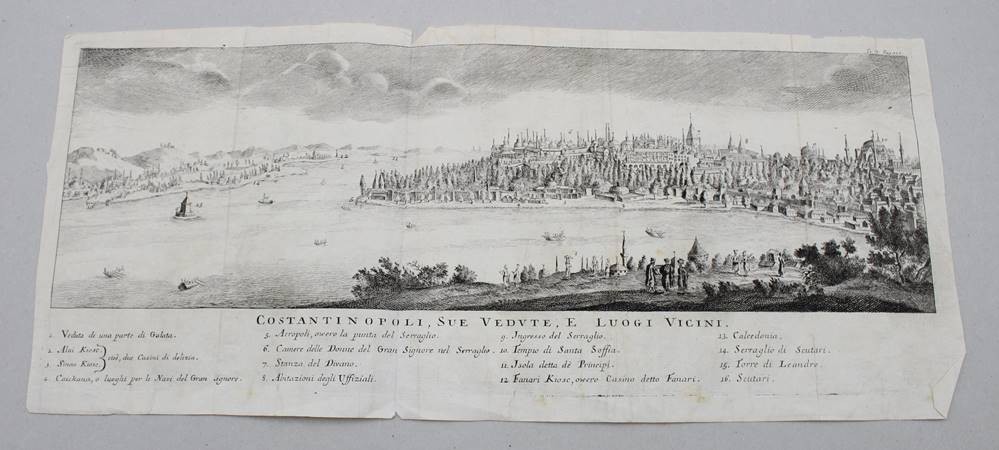 COSTANTINOPOLI, SUE VEDVTE, E LUOGI VICINI.
1. Veduta di una parte di Galata.
2. Alai Kiosc
3. Sinan Kiosc
cioè, due Casini di delizia.
4. Caickana, o luoghi per le Navi del Gran Signore.
5. Acropoli, ovvero la punta del Serraglio.
6. Camere delle Donne del Gran Signore nel Serraglio.
7. Stanza del Divano.
8. Abitazioni degli Uffiziali.
9. Ingresso del Serraglio.
10. Tempio di Santa Soffia.
11. Isola detta de Principi.
12. Fanari Kiosc, ovvero Casino detto Fanari.
13. Calcedonia.
14. Serraglio di Scutari.
15. Torre di Leandro.
16. Scutari.